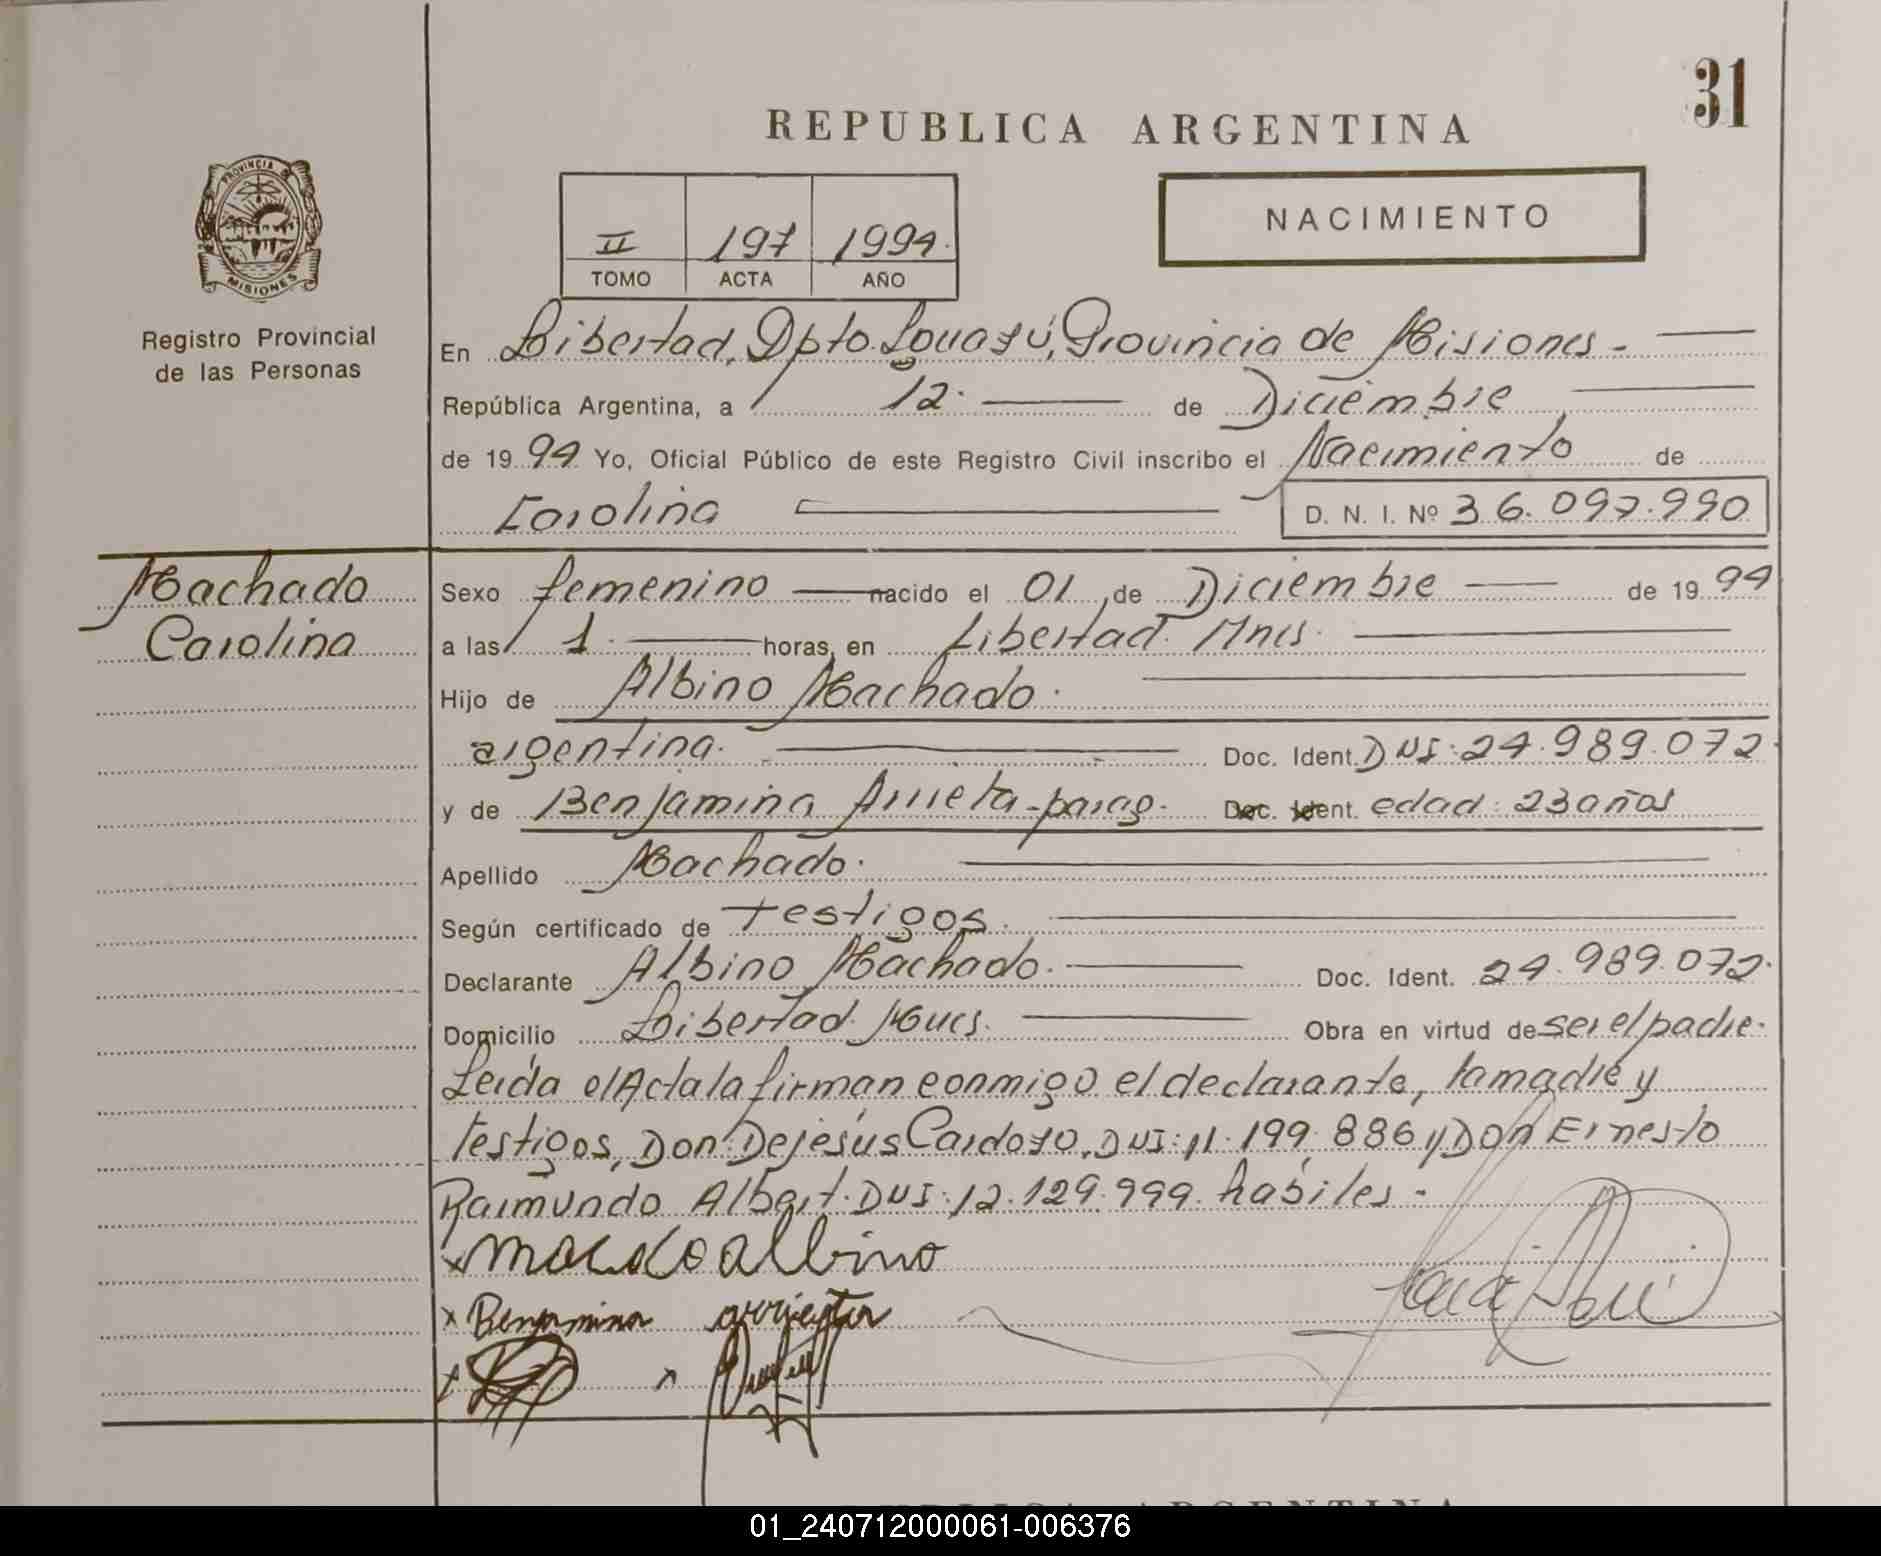 31
REPUBLICA ARGENTINA
PROVINCIA DE
MISIONES
Registro Provincial
de las Personas
II 197 1994.
TOMO ACTA AÑO
NACIMIENTO
En Libertad, Dpto. Iguazú, Provincia de Misiones.-
República Argentina, a 12. de Diciembre
de 1994 Yo, Oficial Público de este Registro Civil inscribo el Nacimiento de
Carolina D. N. I. Nº 36.097.990
Machado
Carolina
Sexo femenino nacido el 01 de Diciembre de 1994
a las 1. horas, en Libertad. Mnes.
Hijo de Albino Machado.
argentina. Doc. Ident. DNI: 24.989.072.
y de Benjamina Arrieta-parag. Doc. Ident. edad: 23 años
Apellido Machado.
Según certificado de testigos.
Declarante Albino Machado. Doc. Ident. 24.989.072.
Domicilio Libertad. Mnes. Obra en virtud de ser el padre.
Leída el Acta la firman conmigo el declarante, la madre y
testigos, Don Dejesús Cardozo, DNI: 11.199.886 y Don Ernesto
Raimundo Albert. DNI: 12.129.999. hábiles.
x albino
x Benjamina arrieta
x x
REPUBLICA ARGENTINA
01_240712000061-006376